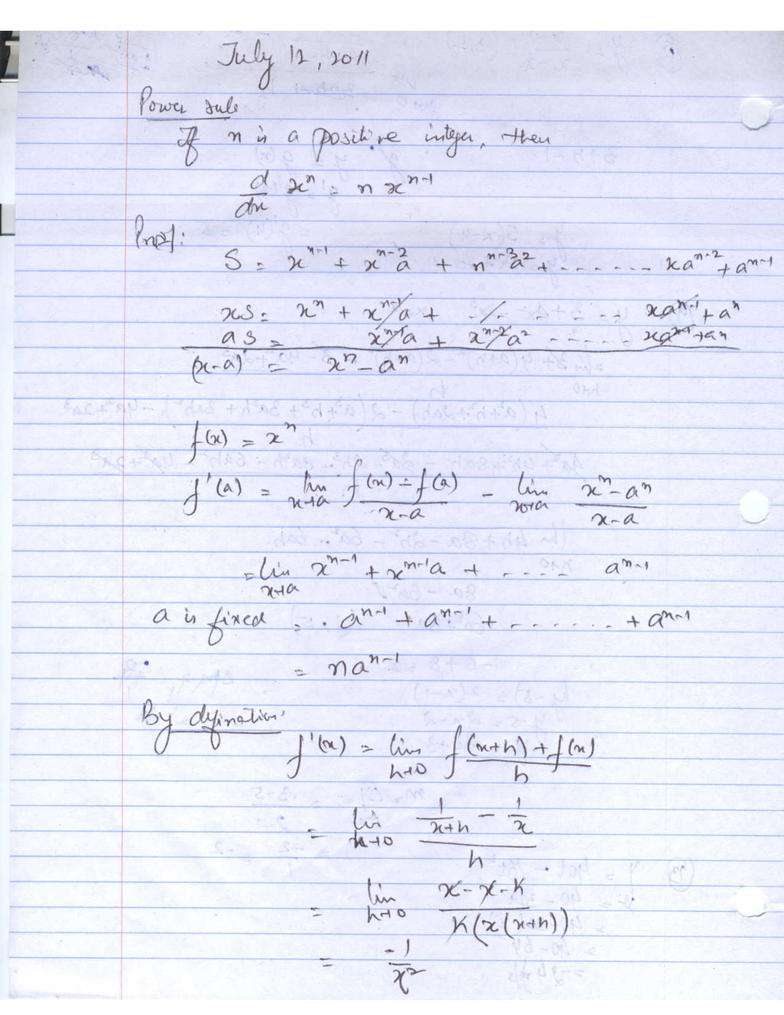 July 12, 2011
Power rule
If n is a positive integer, then
d/dx xⁿ = n xⁿ⁻¹
Proof:
S = xⁿ⁻¹ + xⁿ⁻²a + nⁿ⁻³a² + ....... xaⁿ⁻² + aⁿ⁻¹
xS = xⁿ + xⁿ⁻¹a + ..... xaⁿ⁻¹ + aⁿ
aS = xⁿ⁻¹a + xⁿ⁻²a² .... xaⁿ⁻¹ + aⁿ
(x-a) = xⁿ - aⁿ
f(x) = xⁿ
f'(a) = lim x→a (f(x) - f(a))/(x-a) - lim x→a (xⁿ - aⁿ)/(x-a)
= lim x→a xⁿ⁻¹ + xⁿ⁻¹a + ..... aⁿ⁻¹
a is fixed = . aⁿ⁻¹ + aⁿ⁻¹ + ....... + aⁿ⁻¹
= naⁿ⁻¹
By defination
f'(x) = lim h→0 (f(x+h) + f(x))/h
= lim x→0 (1/(x+h) - 1/x)/h
= lim h→0 (x - x - h)/(h(x(x+h)))
= -1/x²